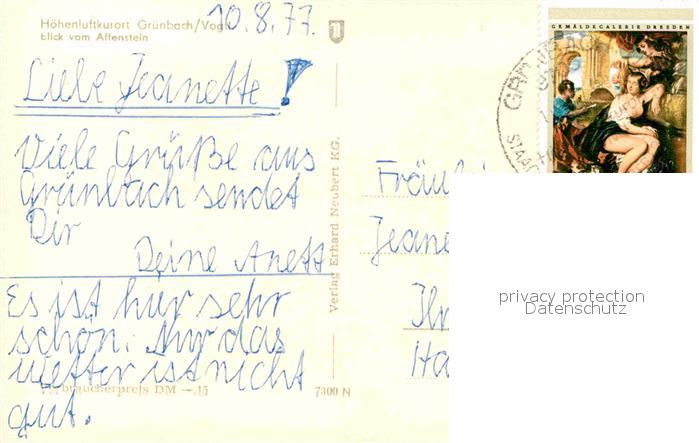 Höhenluftkurort Grünbach/Vogtl.
Blick vom Affenstein
10.8.77.
Liebe Jeanette!
Viele Grüße aus
Grünbach sendet
Dir
Deine Anett
Es ist hier sehr
schön. Nur das
Wetter ist nicht
gut.
Verbraucherpreis DM –.15
7300 N
Verlag Erhard Neubert KG.
GEMÄLDEGALERIE DRESDEN
Fräu
Jeane
Ha
privacy protection
Datenschutz